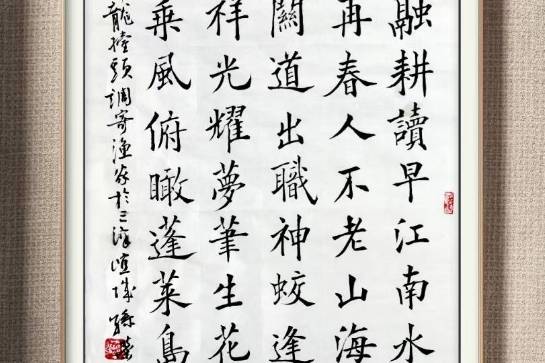 融耕讀早江南水
再春人不老山海
關道出職神蛟逢
祥光耀夢筆生花
乘風俯瞰蓬萊島
龍擡頭調寄漁家於